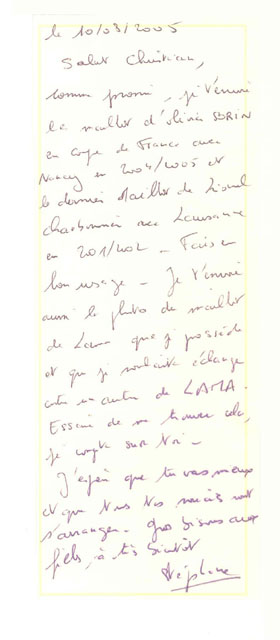 le 10/03/2005
Salut Christian,
comme promis, je t'envoie
le maillot d'olivier SORIN
en coupe de France avec
Nancy en 2004/2005 et
le dernier Maillot de Lionel
charbonnier avec Lausanne
en 201/202 - Fais en
bon usage - Je t'envoie
aussi la photo de maillot
de Lama que j possède
et que je souhaite échanger
contre un autre de LAMA.
Essaie de me trouver cela,
je compte sur toi -
J'espère que tu vas mieux
et que tous tes soucis vont
s'arranger - gros bisous aux
fields, à très bientôt
Stéphane